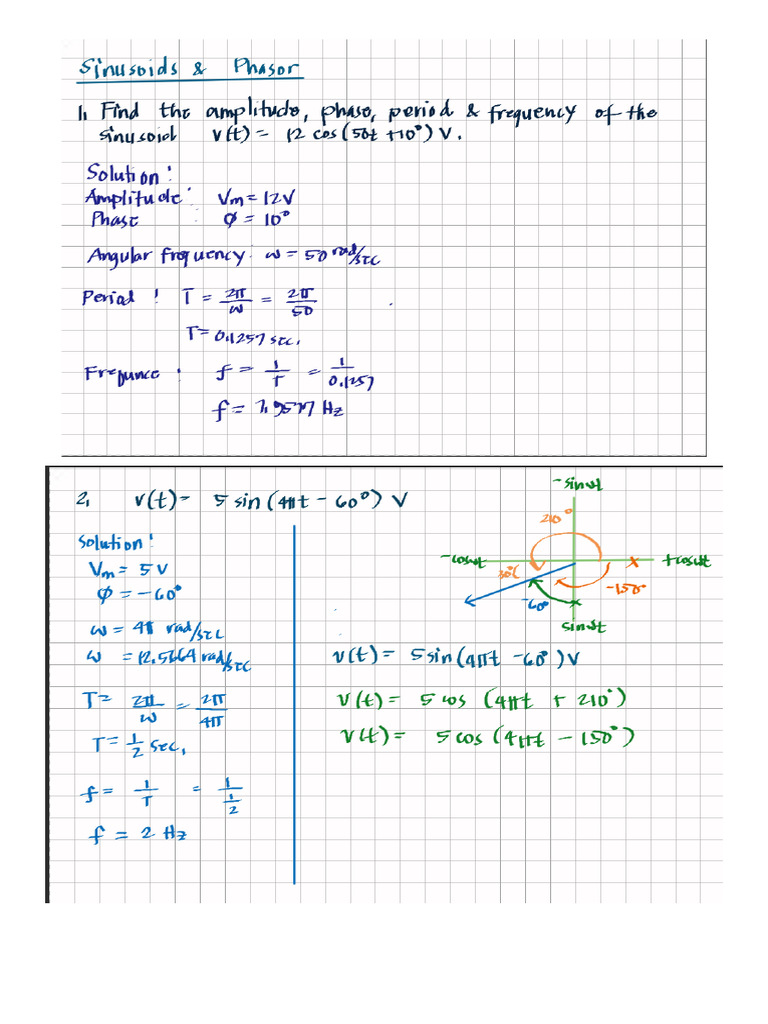 Sinusoids & Phasor
1. Find the amplitude, phase, period & frequency of the
sinusoid v(t) = 12 cos(50t +10°) V.
Solution:
Amplitude: Vm = 12V
Phase : φ = 10°
Angular frequency: ω = 50 rad/sec
Period : T = 2π/ω = 2π/50
T = 0.1257 sec.
Frequnce : f = 1/T = 1/0.1257
f = 7.9577 Hz
2. v(t) = 5 sin (4πt − 60°) V
Solution:
Vm = 5 V
φ = −60°
ω = 4π rad/sec
ω = 12.5664 rad/sec
T = 2π/ω = 2π/4π
T = 1/2 sec.
f = 1/T = 1/(1/2)
f = 2 Hz
−sinωt
210°
−cosωt
+cosωt
30°
−150°
−60°
sinωt
v(t) = 5 sin(4πt −60°)V
v(t) = 5 cos (4πt + 210°)
v(t) = 5 cos (4πt − 150°)